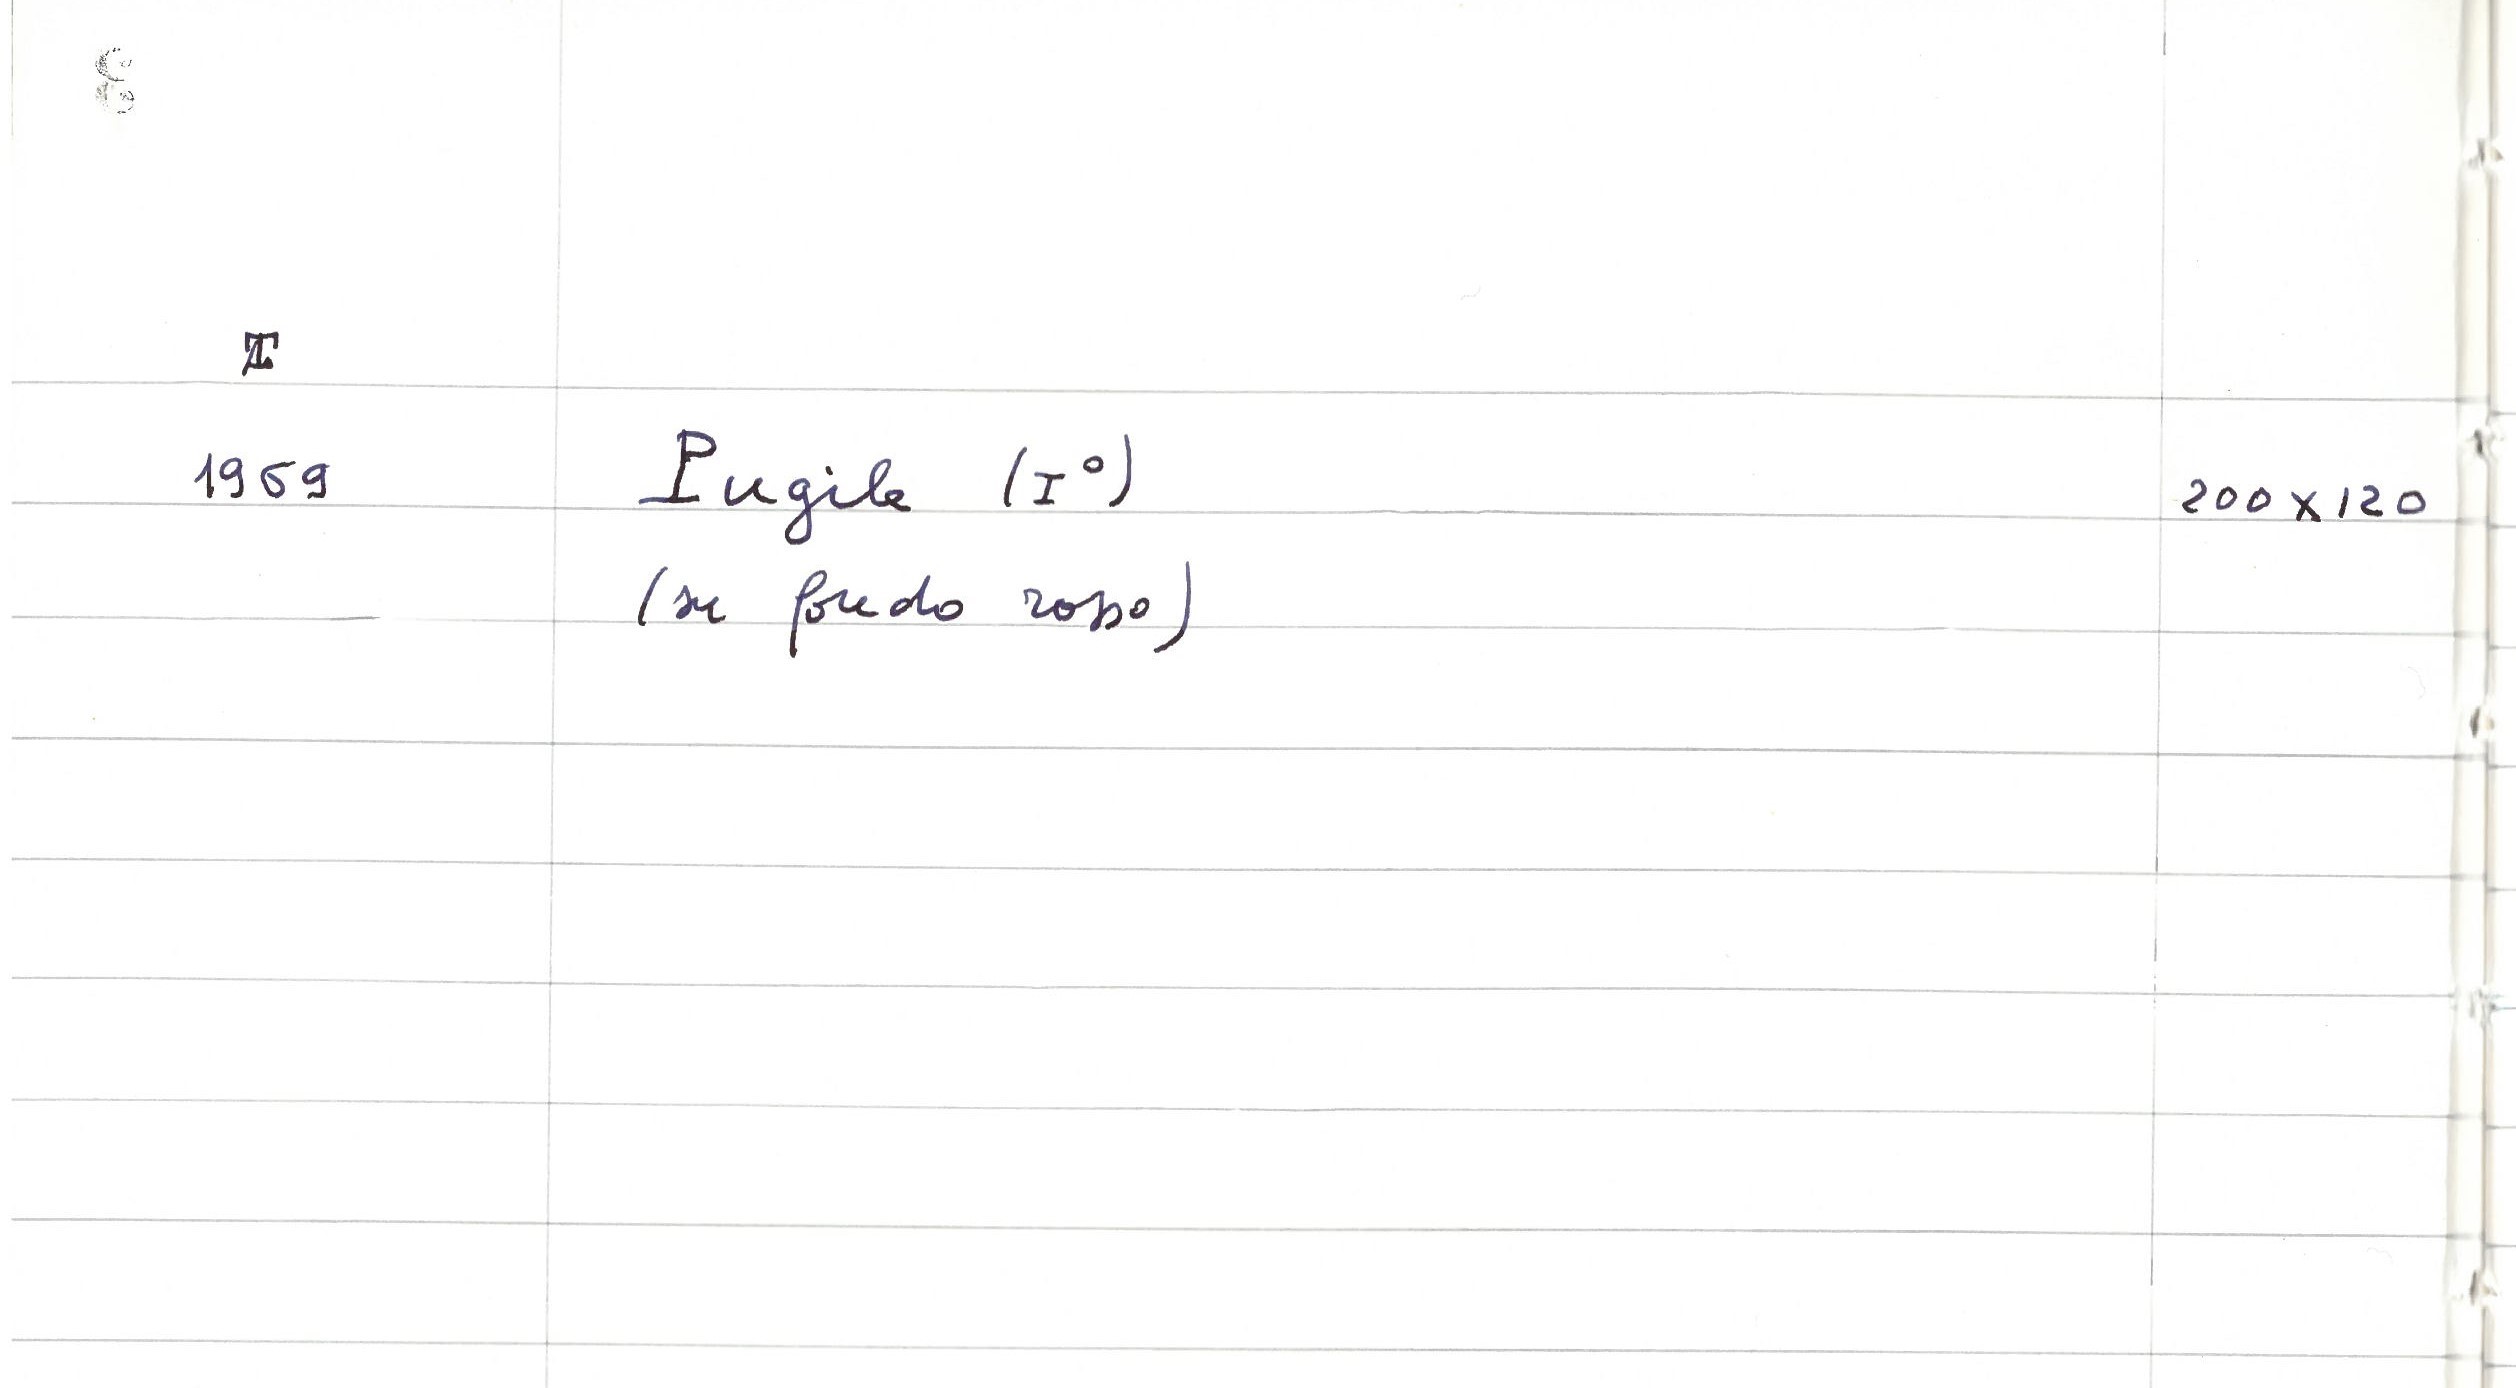 T
1969 Pugile (I°) 200 x 120
(su fondo rosso)